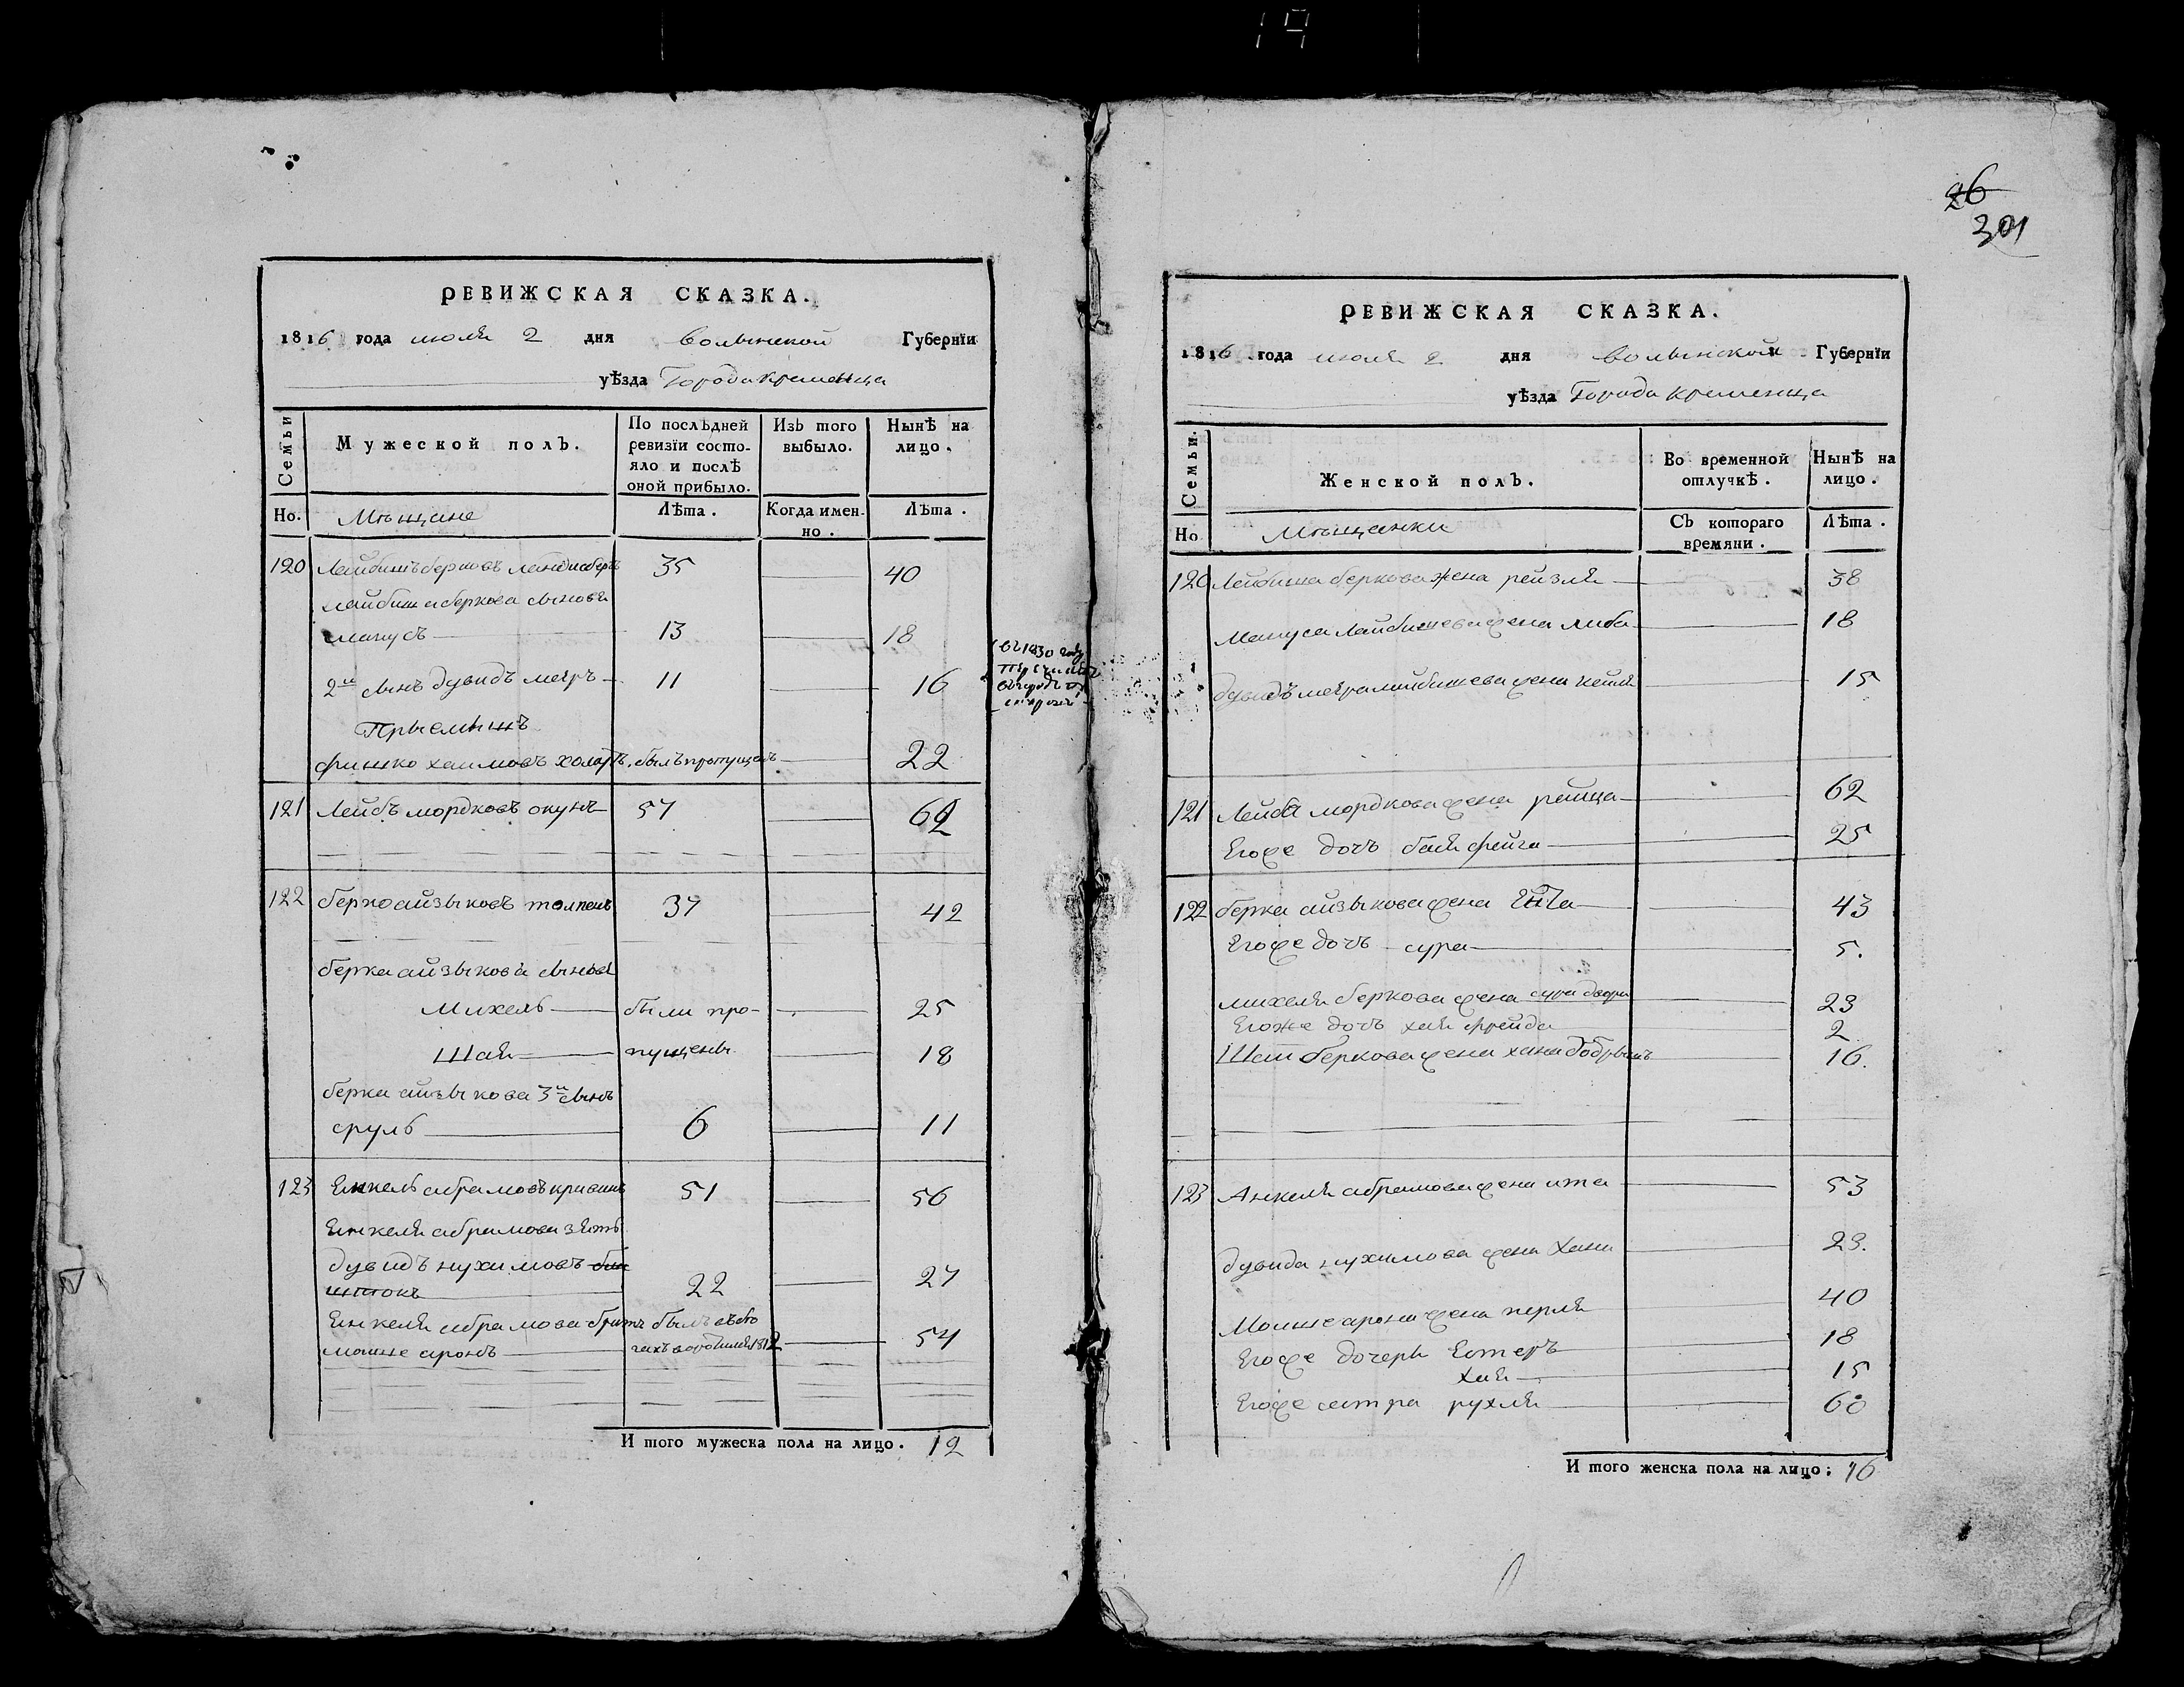 19
26
301
РЕВИЖСКАЯ СКАЗКА.
1816 года июля 2 дня Волынской Губернїи
уѣзда Города Кременца
Семьи
Мужеской полъ.
По послѣдней ревизїи состояло и послѣ оной прибыло.
Изъ того выбыло.
Нынѣ на лицо.
Но.
Мѣщане
Лѣта.
Когда именно.
Лѣта.
120 Лейбишъ берковъ ландисберъ 35 40
лейбиша беркова сыновя
манусъ 13 18
2й сынъ дувидъ меэръ 11 16
въ 1830 году
Прыемышъ
фишко хаимовъ былъ пропущенъ 22
121 Лейбъ мордковъ окунь 57 62
122 берко айзыковъ 37 42
берка айзыкова сыновя
Михель были про- 25
Шая пущены 18
берка айзыкова 3й сынъ
сруль 6 11
123 Янкель абрамовъ 51 56
Янкеля абрамова зять
дувидъ нухимовъ
22 27
Янкеля абрамова братъ былъ въ
мошке аронъ 1812 54
И того мужеска пола на лицо. 12
РЕВИЖСКАЯ СКАЗКА.
1816 года июля 2 дня Волынской Губернїи
уѣзда Города Кременца
Семьи.
Женской полъ.
Во временной отлучкѣ.
Нынѣ на лицо.
Но
Мѣщанки
Съ котораго времяни.
Лѣта.
120 Лейбиша беркова жена рейзля 38
Мануса лейбишева жена либа 18
дувидъ меэра лейбишева жена кейля 15
121 Лейба мордкова жена рейца 62
Егоже дочъ бася фейга 25
122 берка айзыкова жена 43
Егоже дочъ сура 5.
михеля беркова жена сура двора 23
Егоже дочъ хая фрейда 2
Шаи беркова жена хана добрышъ 16.
123 Янкеля абрамова жена ита 53
дувида нухимова жена хана 23.
Мошке арона жена перля 40
Егоже дочери Естеръ 18
хая 15
Егоже сестра рухля 60
И того женска пола на лицо: 16